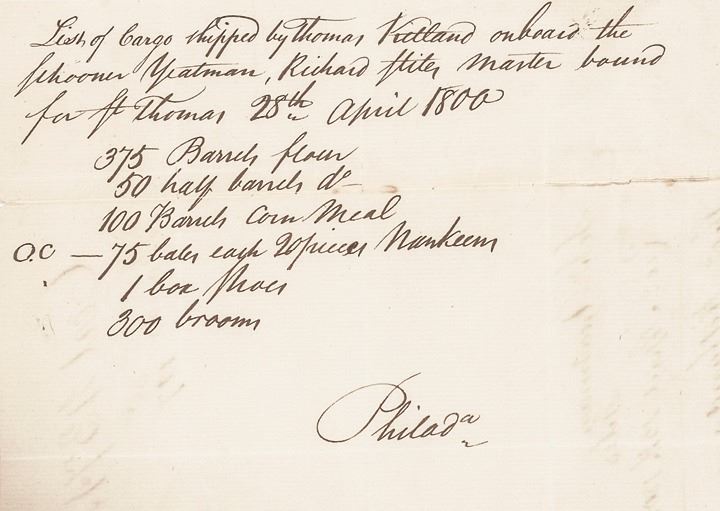 List of Cargo shipped by Thomas Ketland onboard the
schooner Yeatman, Richard Stiles Master bound
for St Thomas 28th April 1800
375 Barrels flour
50 half barrels do
100 Barrels Corn Meal
O.C — 75 bales each 20 pieces Nankeens
1 box Shoes
300 brooms
Philada